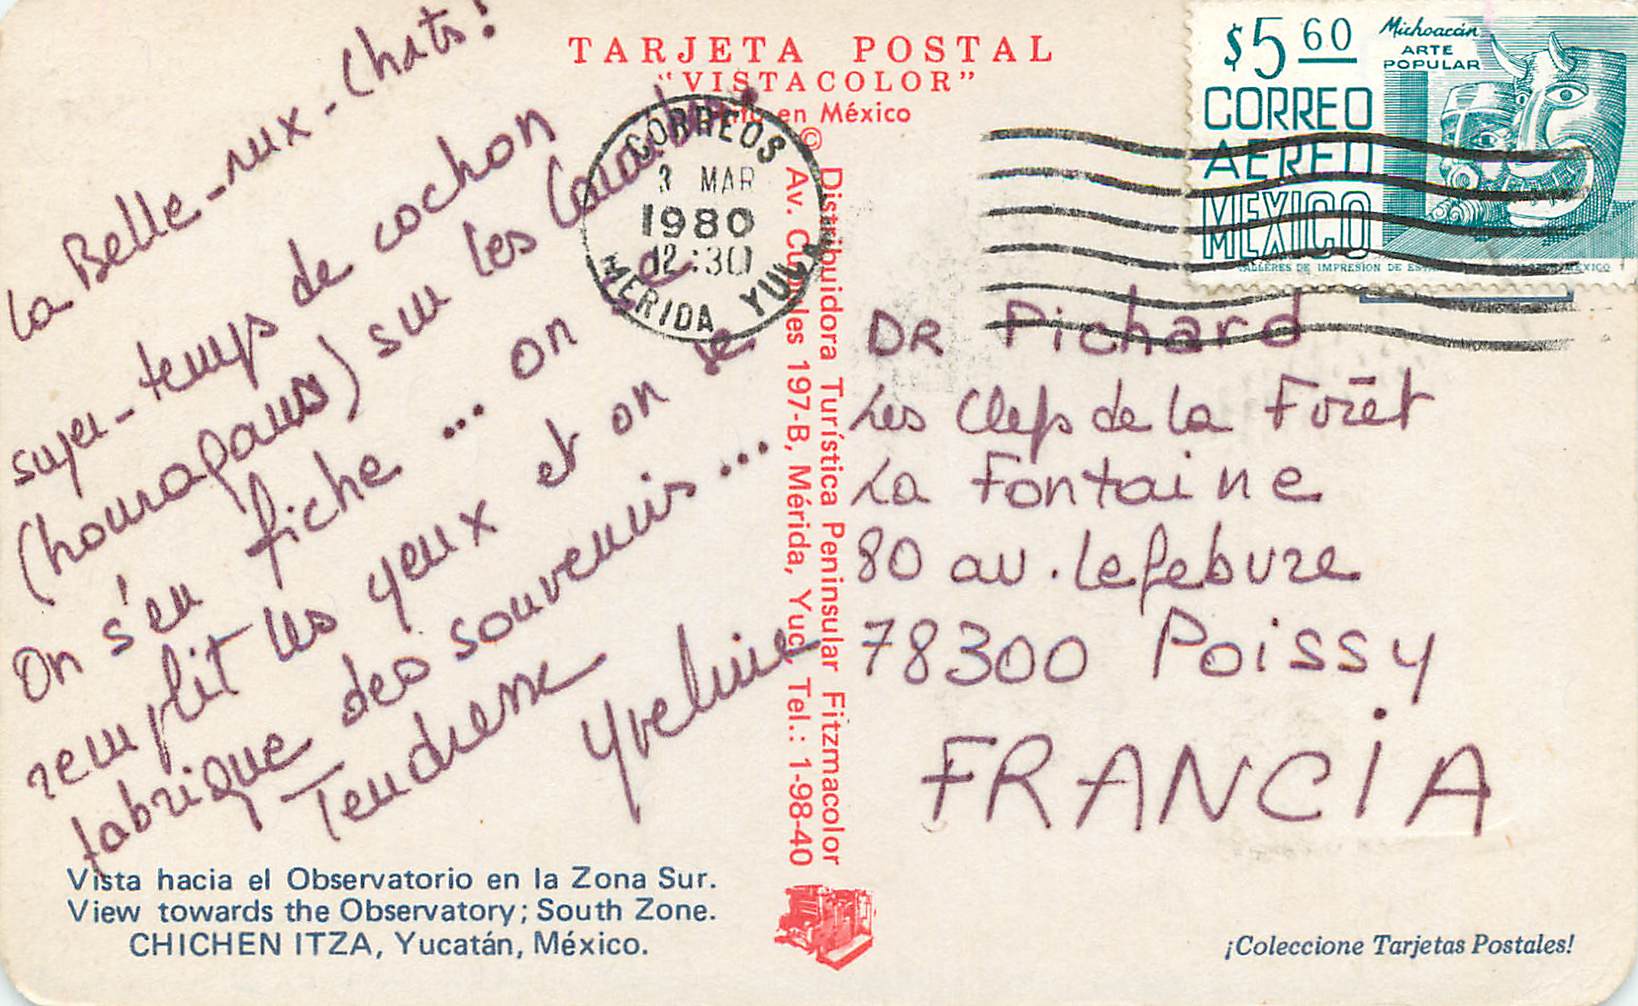 TARJETA POSTAL
"VISTACOLOR"
en México
$5 60
Michoacán
ARTE
POPULAR
CORREO
AEREO
MEXICO
TALLERES DE IMPRESION DE MEXICO
CORREOS
3 MAR
1980
12:30
MERIDA YUC
La Belle-aux-Chats!
super-temps de cochon
(houragans) sur les
On s'en fiche... on se
remplit les yeux et on se
fabrique des souvenirs...
Tendresse
Yveline
Distribuidora Turística Peninsular Fitzmacolor
© Av. Cupules 197-B, Mérida, Yuc. Tel.: 1-98-40
DR Pichard
Les Clefs de la Forêt
La Fontaine
80 av. Lefebvre
78300 Poissy
FRANCIA
Vista hacia el Observatorio en la Zona Sur.
View towards the Observatory; South Zone.
CHICHEN ITZA, Yucatán, México.
¡Coleccione Tarjetas Postales!